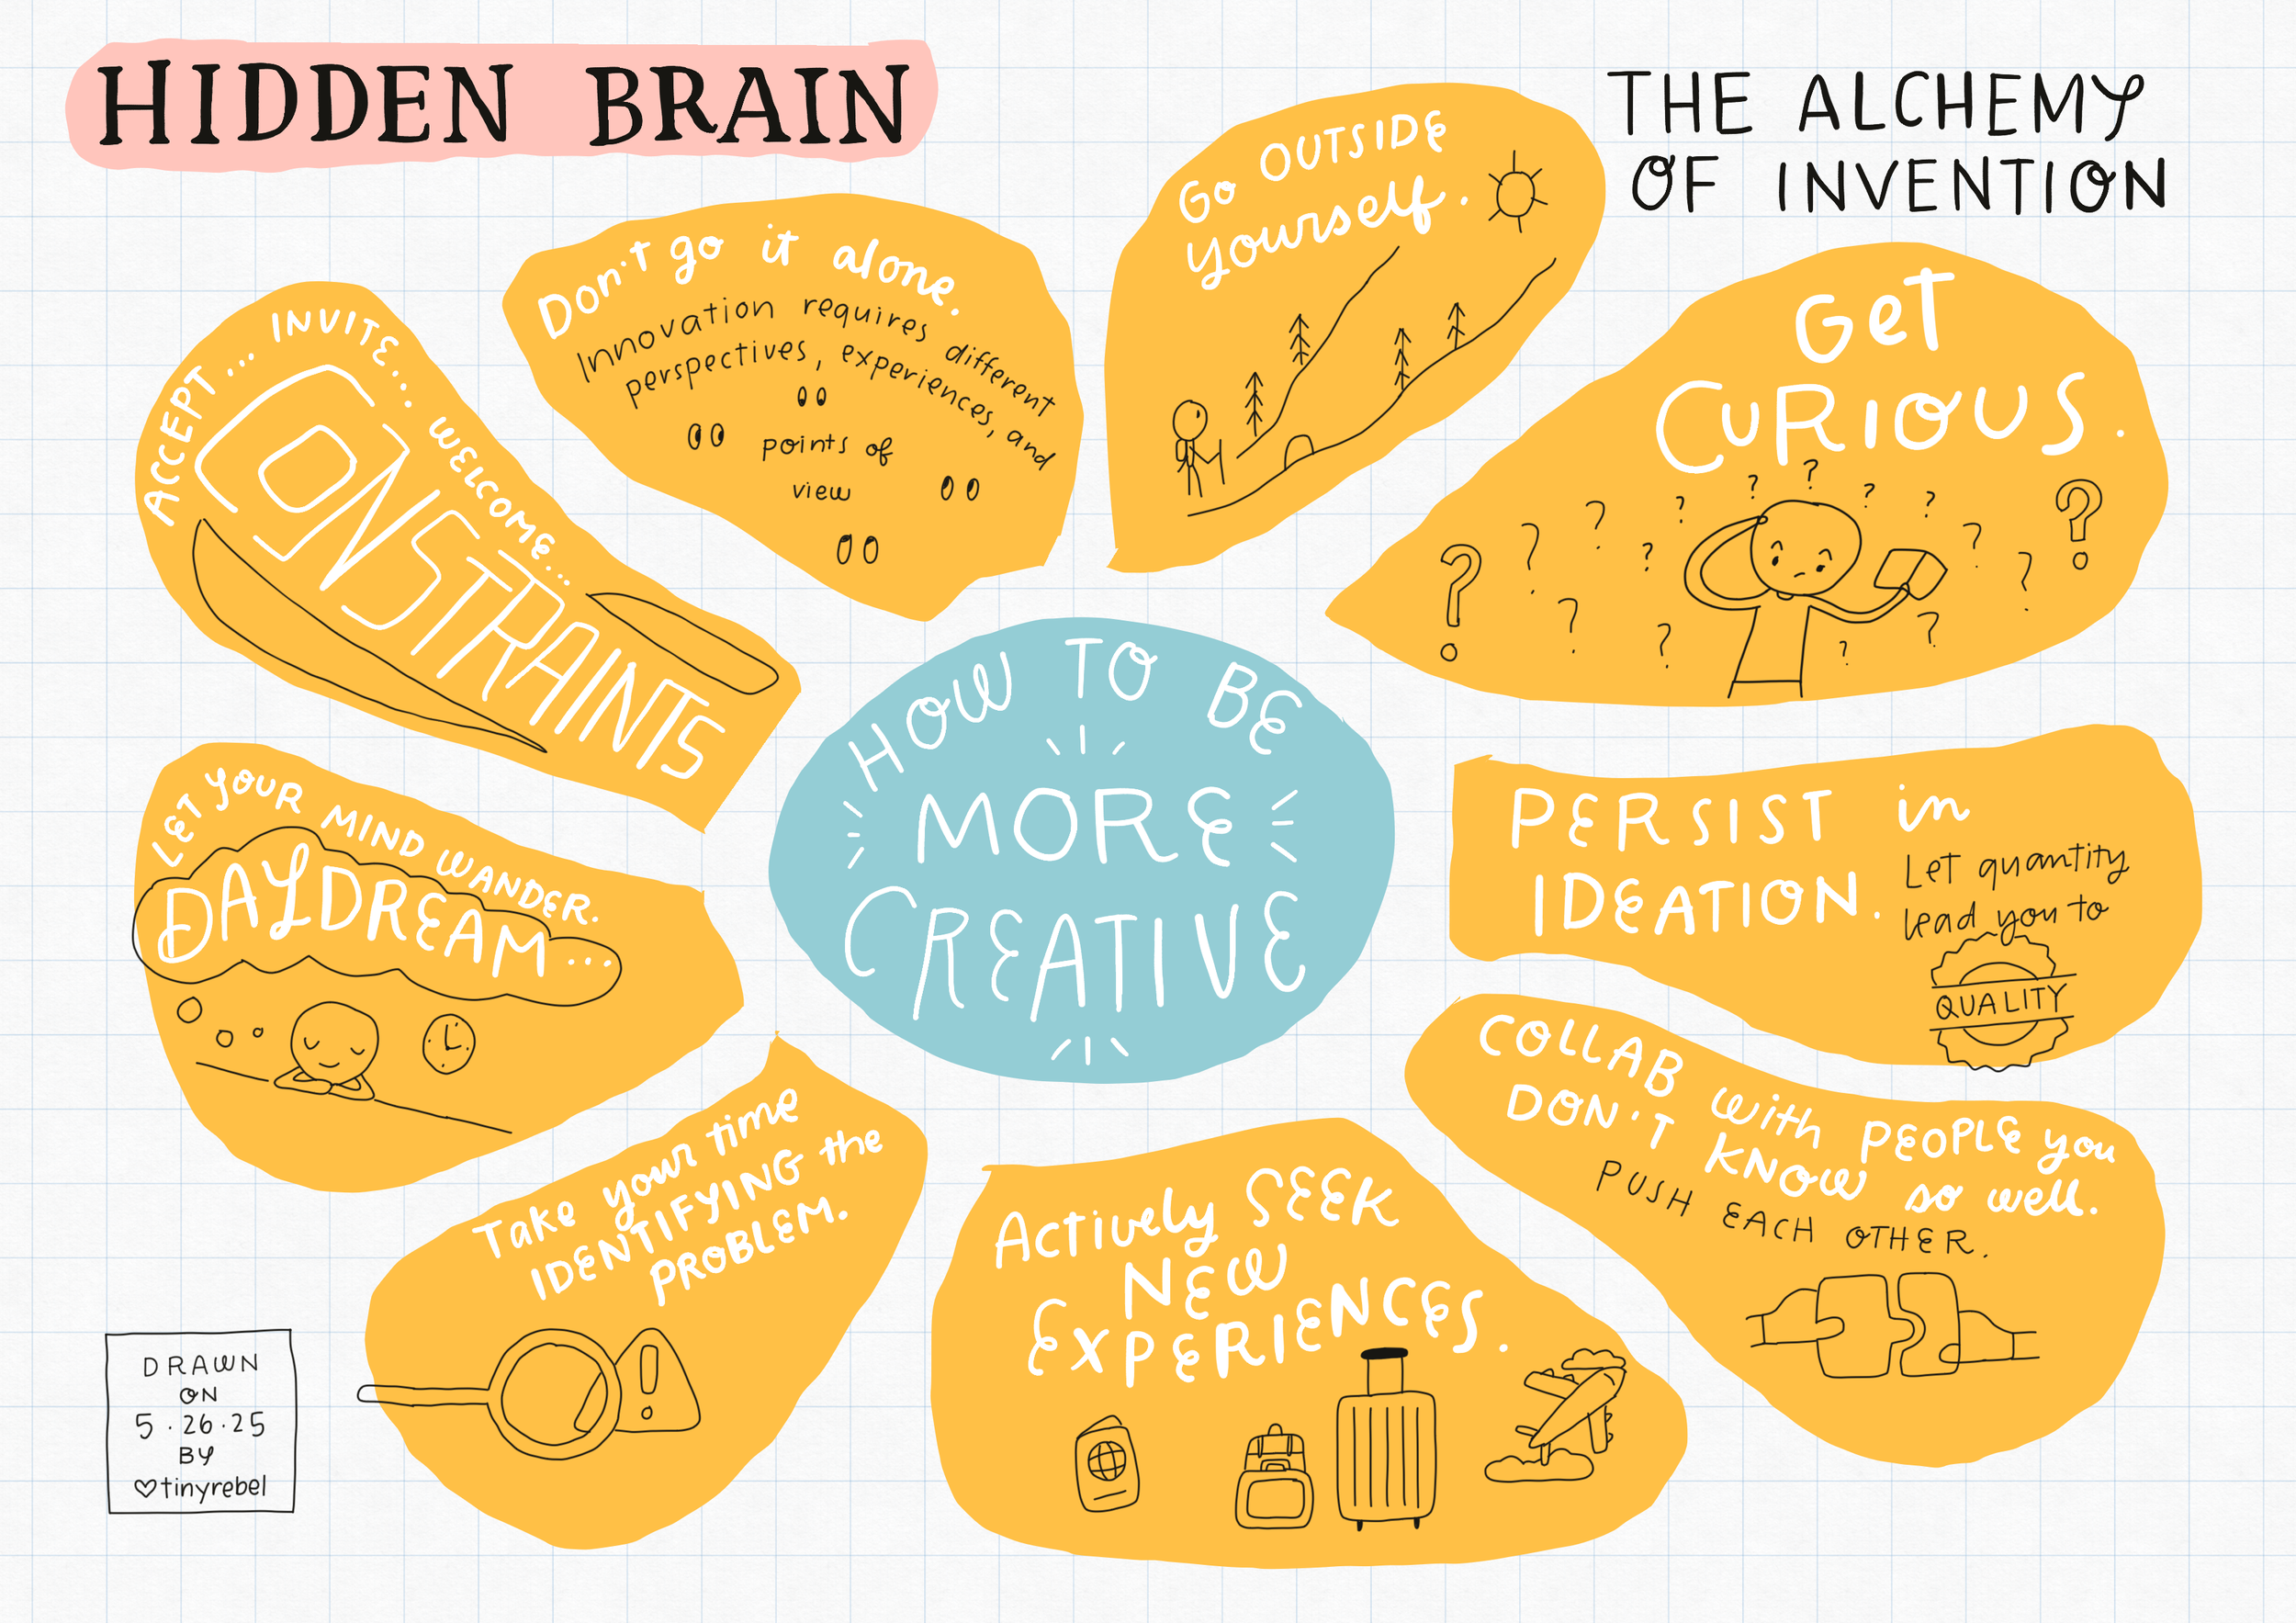 HIDDEN BRAIN
THE ALCHEMY
OF INVENTION
HOW TO BE
MORE
CREATIVE
ACCEPT... INVITE... WELCOME...
CONSTRAINTS
Don't go it alone.
Innovation requires different
perspectives, experiences, and
points of
view
GO OUTSIDE
yourself.
GET
CURIOUS.
? ? ? ? ? ? ? ? ? ? ? ? ? ? ? ? ?
PERSIST in
IDEATION.
Let quantity
lead you to
QUALITY
COLLAB with PEOPLE you
DON'T KNOW so well.
PUSH EACH OTHER.
Actively SEEK
NEW
EXPERIENCES.
Take your time
IDENTIFYING the
PROBLEM.
!
LET YOUR MIND WANDER.
DAYDREAM...
DRAWN
ON
5.26.25
BY
♡tinyrebel